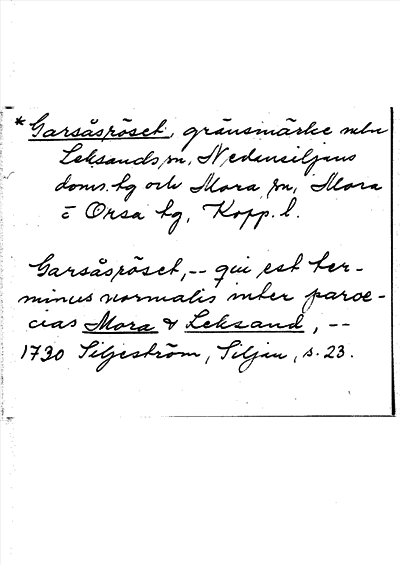 * Garsåsröset, gränsmärke mln
Leksands sn, Nedansiljans
doms. hg och Mora sn, Mora
o Orsa hg, Kopp. l.
Garsåsröset, -- qui est ter-
minus normalis inter paroe-
cias Mora & Leksand, --
1730 Siljeström, Siljan, s. 23.